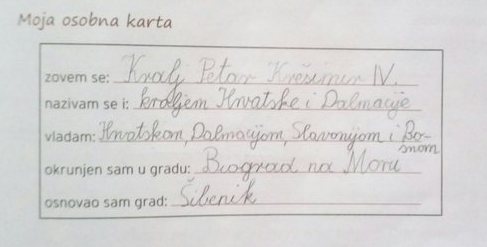 Moja osobna karta
zovem se: Kralj Petar Krešimir IV.
nazivam se i: kraljem Hrvatske i Dalmacije
vladam: Hrvatskom, Dalmacijom, Slavonijom i Bo-
snom
okrunjen sam u gradu: Biograd na Moru
osnovao sam grad: Šibenik